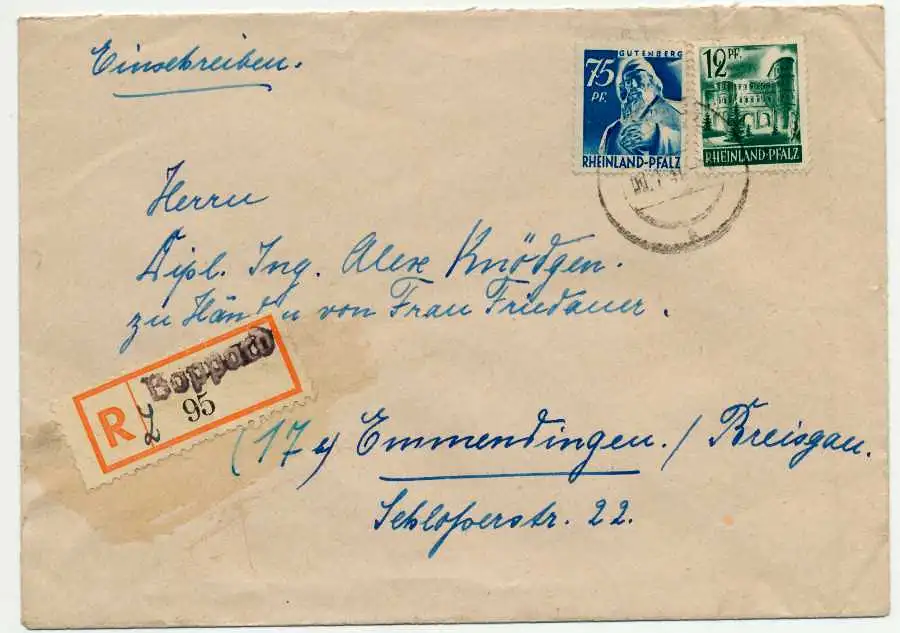 Einschreiben.
GUTENBERG
75
PF.
RHEINLAND-PFALZ
12 PF.
RHEINLAND-PFALZ
Herrn
Dipl. Ing. Alex Knödgen.
zu Händen von Frau Friedauer.
R
Boppard
95
(17 Emmendingen. / Breisgau.
Schlosserstr. 22.